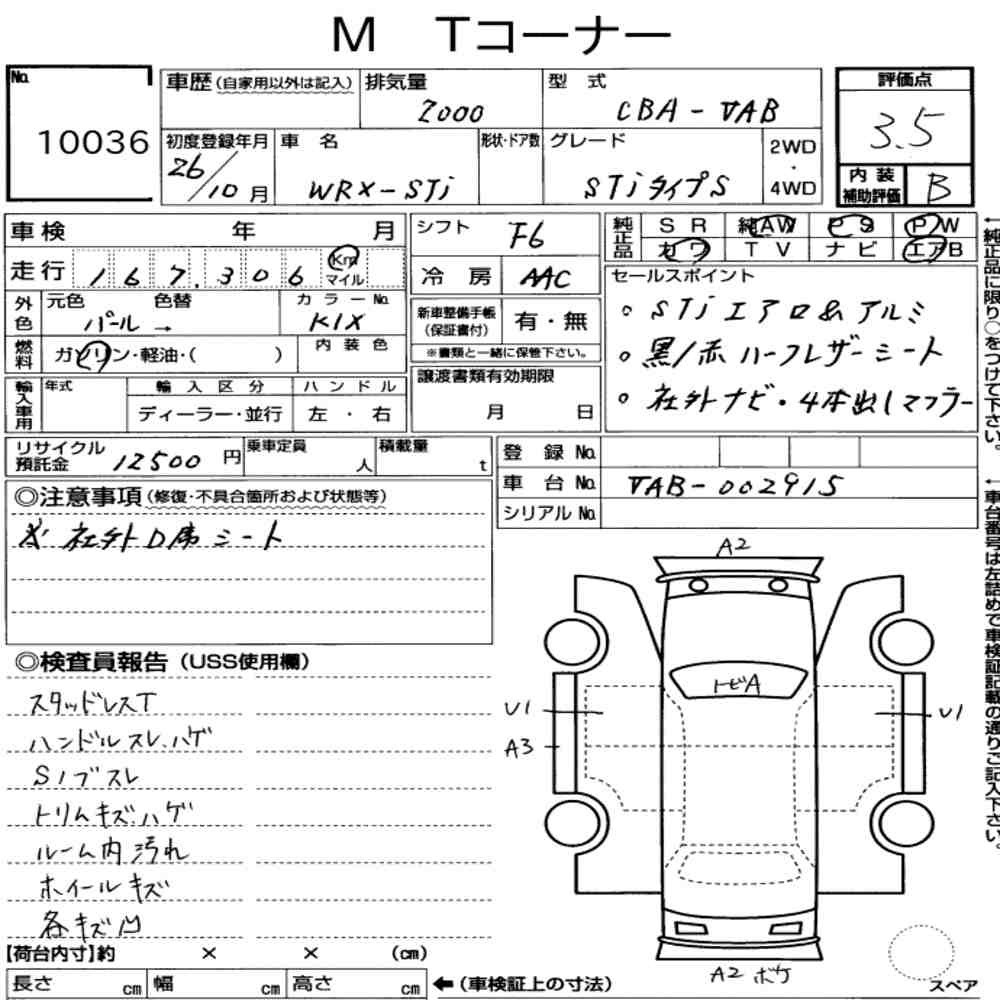 M Tコーナー
No.
10036
車歴(自家用以外は記入)
排気量
2000
型式
CBA-VAB
評価点
3.5
初度登録年月
26/10月
車名
WRX-STi
形状・ドア数
グレード
STiタイプS
2WD
・
4WD
内装
補助評価
B
車検 年 月
シフト
F6
純正品
SR 純AW PS PW
カワ TV ナビ エアB
走行 167,306 Km
マイル
冷房
AAC
セールスポイント
。STiエアロ&アルミ
。黒/赤ハーフレザーシート
。社外ナビ・4本出しマフラー
外色
元色 色替
パール→
カラーNo.
K1X
新車整備手帳
(保証書付)
有・無
※書類と一緒に保管下さい。
燃料
ガソリン・軽油・( )
内装色
譲渡書類有効期限
月 日
輸入車用
年式
輸入区分
ディーラー・並行
ハンドル
左・右
リサイクル
預託金
12500円
乗車定員
人
積載量
t
登録No.
車台No.
VAB-002915
シリアルNo.
◎注意事項(修復・不具合箇所および状態等)
※社外D席シート
◎検査員報告(USS使用欄)
スタッドレスT
ハンドルスレ、ハゲ
Sノブスレ
トリムキズ、ハゲ
ルーム内汚れ
ホイールキズ
各キズ凹
【荷台内寸】約 × × (cm)
長さ cm 幅 cm 高さ cm
←(車検証上の寸法)
A2
トビA
U1
A3
U1
A2 ボケ
スペア
←純正品に限り○をつけて下さい。
←車台番号は左詰めで車検証記載の通りご記入下さい。